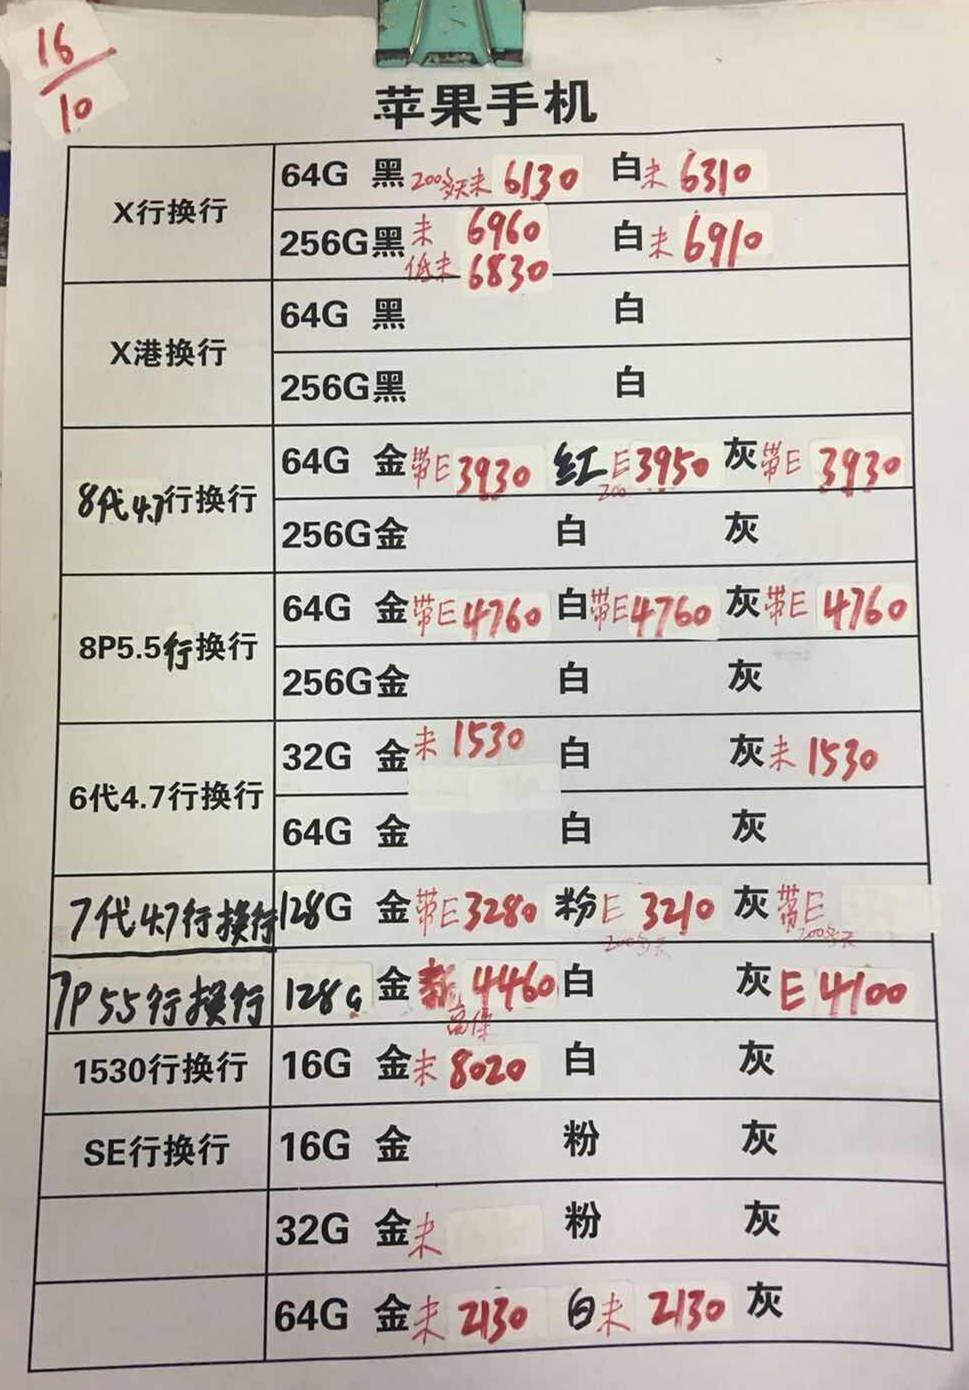 16
10
苹果手机
X行换行
64G 黑 200多天未 6130 白未 6310
256G黑 未 6960 白未 6910
低未 6830
X港换行
64G 黑 白
256G黑 白
8代4.7行换行
64G 金带E3930 红E3950 灰带E 3930
200
256G金 白 灰
8P5.5行换行
64G 金带E4760 白带E4760 灰带E 4760
256G金 白 灰
6代4.7行换行
32G 金未 1530 白 灰未 1530
64G 金 白 灰
7代4.7行换行 128G 金带E3280 粉E 3210 灰带E
200多天 200多天
7P55行换行 128G 金新 4460 白 灰E4100
高保
1530行换行 16G 金未 8020 白 灰
SE行换行 16G 金 粉 灰
32G 金未 粉 灰
64G 金未 2130 白未 2130 灰